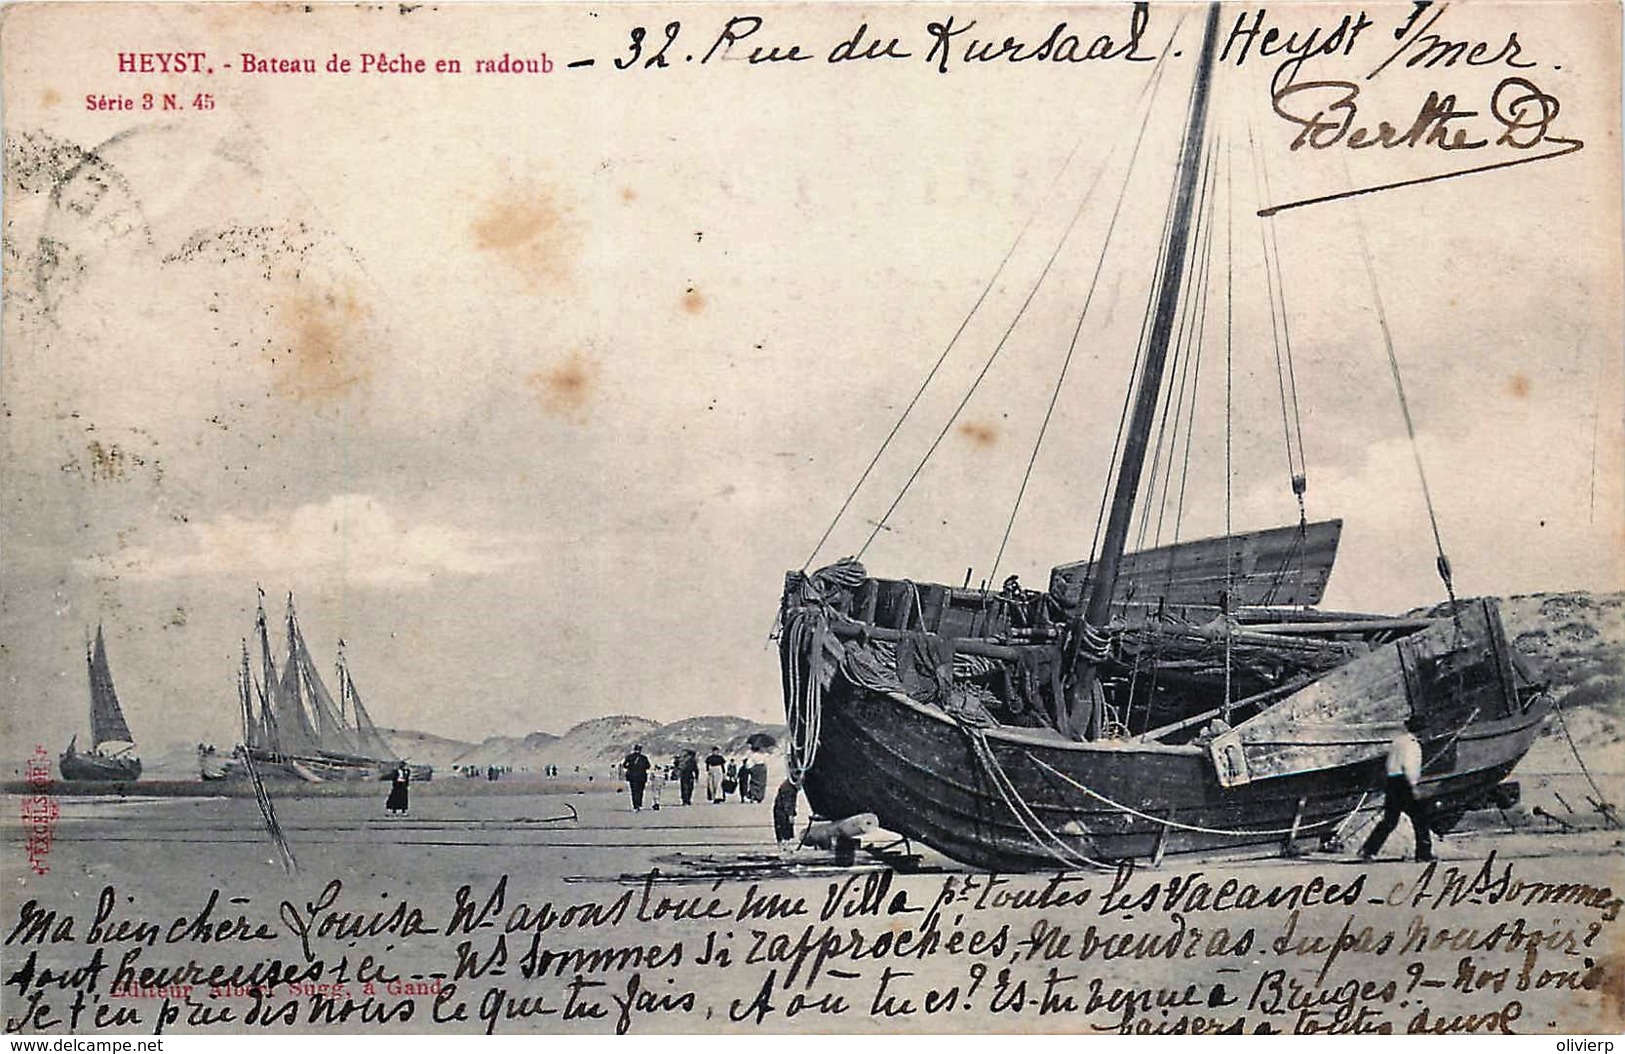 HEYST. - Bateau de Pêche en radoub - 32. Rue du Kursaal. Heyst s/mer.
Série 3 N. 45
Berthe D
EXCELSIOR
Ma bien chère Louisa Ns avons loué une Villa pr toutes les vacances - et Ns sommes
tout heureuses ici -- Ns sommes si rapprochées, ne viendras-tu pas nous voir?
Editeur Albert Sugg, à Gand
Je t'en prie dis nous ce que tu fais, et où tu es? Es-tu venue à Bruges? - Nos bons
baisers à toutes deux.
www.delcampe.net
olivierp